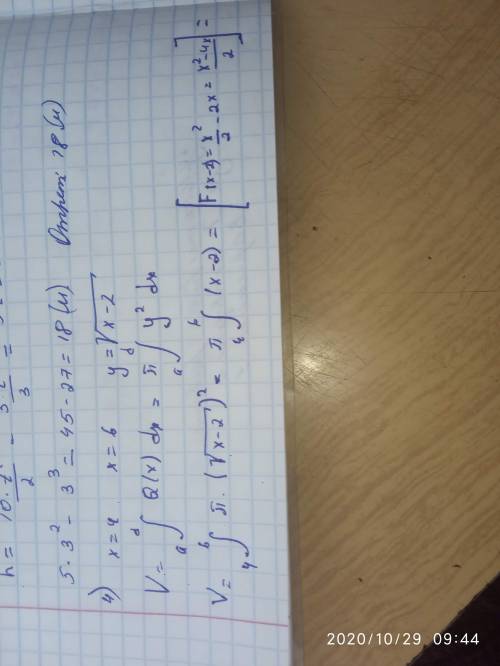 h = 10·t²/2 - 3·t²/3 =
5·3² - 3³ = 45 - 27 = 18 (м) Ответ: 18 (м)
4) x = 4 x = 6 y = √x-2
V = ∫ Q(x) dx = π ∫ y² dx
V = ∫₄⁶ π·(√x-2)² = π ∫₄⁶ (x-2) = [F(x-2) = x²/2 - 2x = x²-4x/2] =
2020/10/29 09:44